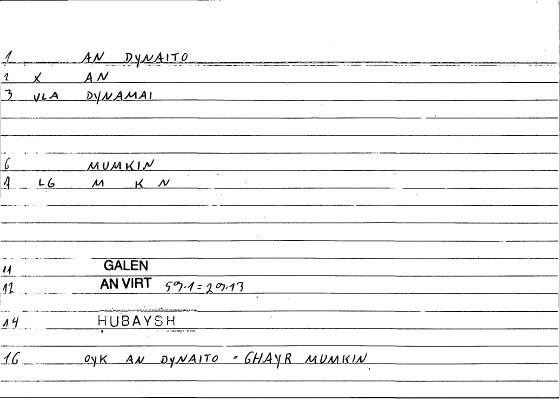 1 AN DYNAITO
2 X AN
3 VLA DYNAMAI
6 MUMKIN
9 LG M K N
11 GALEN
12 AN VIRT 59.1=29.13
14 HUBAYSH
16 OYK AN DYNAITO = GHAYR MUMKIN